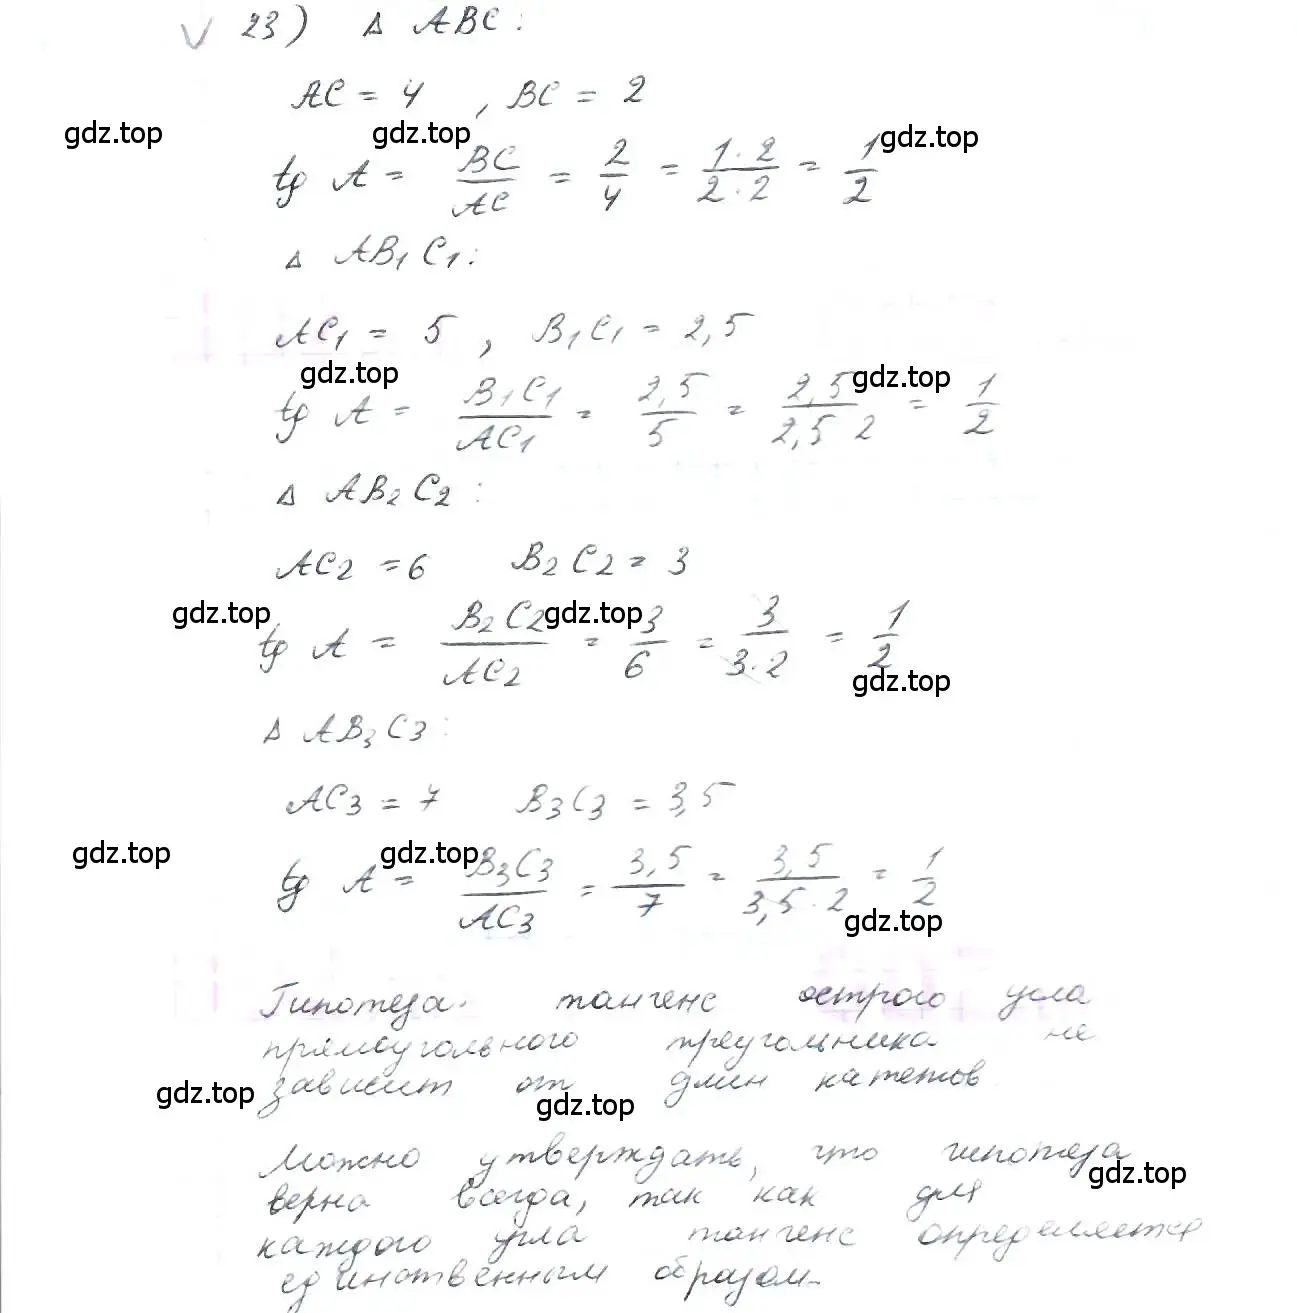 √ 23) Δ ABC:
AC = 4 , BC = 2
gdz.top gdz.top gdz.top
tg A = BC/AC = 2/4 = 1·2/2·2 = 1/2
Δ AB₁C₁:
AC₁ = 5 , B₁C₁ = 2,5
gdz.top gdz.top
tg A = B₁C₁/AC₁ = 2,5/5 = 2,5/2,5 2 = 1/2
Δ AB₂C₂:
AC₂ = 6 B₂C₂ = 3
gdz.top gdz.top
tg A = B₂C₂/AC₂ = 3/6 = 3/3·2 = 1/2
gdz.top
Δ AB₃C₃:
AC₃ = 7 B₃C₃ = 3,5
gdz.top gdz.top
tg A = B₃C₃/AC₃ = 3,5/7 = 3,5/3,5·2 = 1/2
gdz.top
Гипотеза. тангенс острого угла
прямоугольного треугольника не
зависит от длин катетов
gdz.top gdz.top
Можно утверждать, что гипотеза
gdz.top
верна всегда, так как для
каждого угла тангенс определяется
единственным образом.